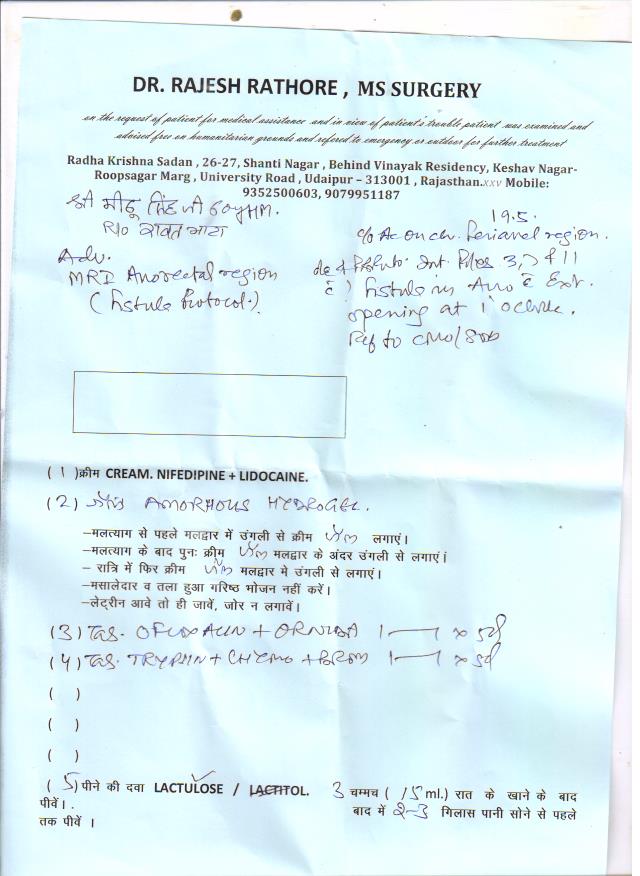 DR. RAJESH RATHORE , MS SURGERY
on the request of patient for medical assistance and in view of patient's trouble patient was examined and
advised free on humanitarian grounds and refered to emergency or outdoor for further treatment
Radha Krishna Sadan , 26-27, Shanti Nagar , Behind Vinayak Residency, Keshav Nagar-
Roopsagar Marg , University Road , Udaipur – 313001 , Rajasthan.xxv Mobile:
9352500603, 9079951187
श्री सिंह जी 60y HM.
R/o रावत भाटा
Adv.
MRI Anorectal region
( fistula Protocol.)
19.5.
c/o Perianal region.
Int. Piles 3, 7 & 11
fistula in Ano Ext.
opening at 1 o'clock.
Ref to CMO/
( 1 )क्रीम CREAM. NIFEDIPINE + LIDOCAINE.
(2) AMORHOUS HYDROGEL.
–मलत्याग से पहले मलद्वार में उंगली से क्रीम लगाएं।
–मलत्याग के बाद पुनः क्रीम मलद्वार के अंदर उंगली से लगाएं।
– रात्रि में फिर क्रीम मलद्वार मे उंगली से लगाएं।
–मसालेदार व तला हुआ गरिष्ठ भोजन नहीं करें।
–लेट्रीन आवे तो ही जावें, जोर न लगावें।
(3) Tab. + 1 — 1 x 5d
(4) Tab. TRYPSIN + CHYMO + BROM 1 — 1 x 5d
( )
( )
( )
( 5 ) पीने की दवा LACTULOSE / LACTITOL. 3 चम्मच ( 15 ml.) रात के खाने के बाद
पीवें। . बाद में 2-3 गिलास पानी सोने से पहले
तक पीवें ।